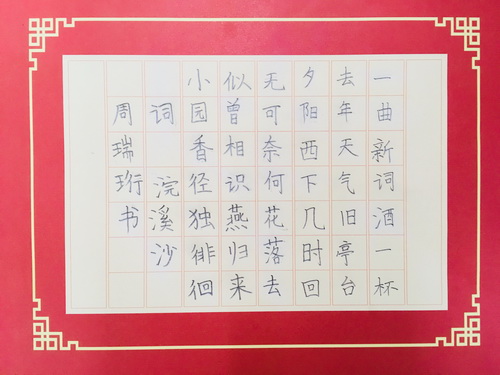 一曲新词酒一杯
去年天气旧亭台
夕阳西下几时回
无可奈何花落去
似曾相识燕归来
小园香径独徘徊
词 浣溪沙
周瑞珩书